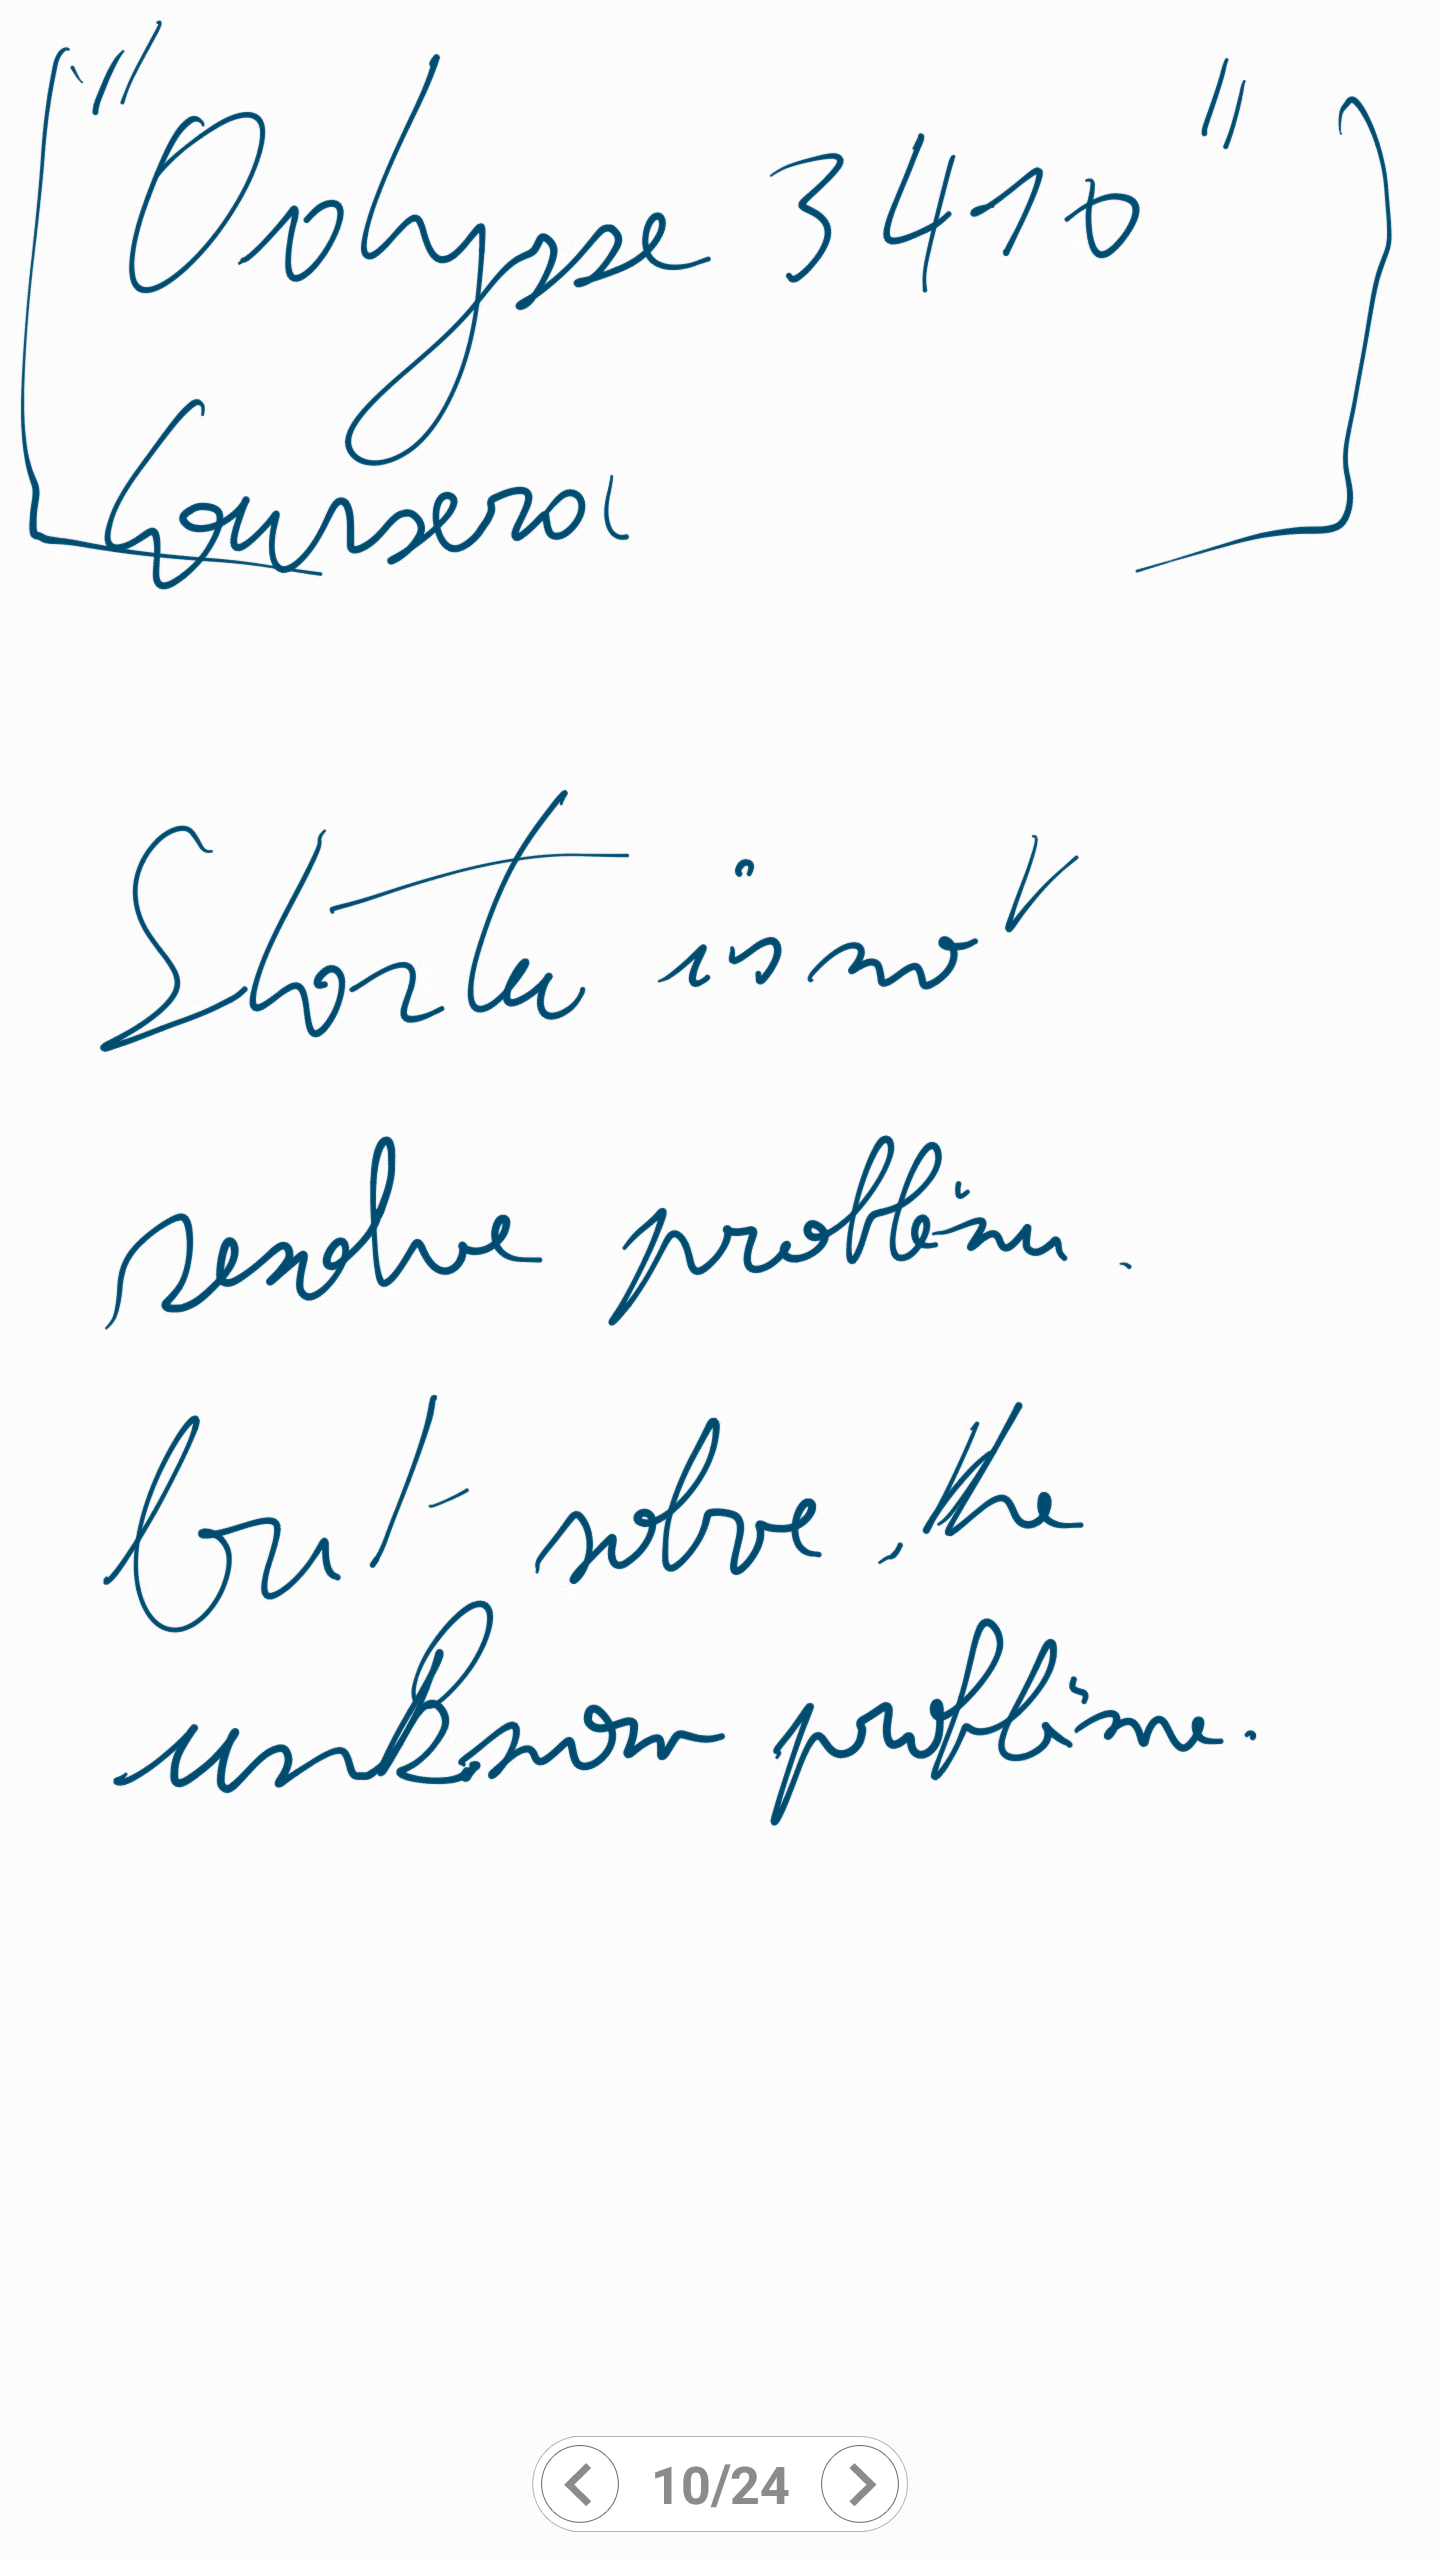 "Odysse 3410"
Coursera
Storter is not
resolve problème.
but solve the
unknow problème.
10/24